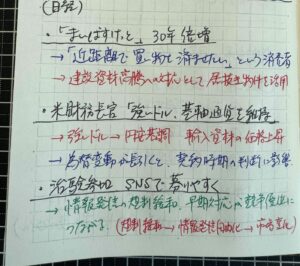 (日経)
・「まいばすけっと」30年倍増
→「近距離で買い物を済ませたい」という消費者
→ 建設資材高騰への対応として居抜き物件を活用
・米財務長官「強いドル、基軸通貨を維持
→ 強いドル → 円安基調 輸入資材の価格上昇
→ 為替変動が長引くと、契約時期の判断に影響
・治験参加 SNSで募りやすく
→ 情報発信の規制緩和、早期対応が競争優位に
つながる。(規制緩和 → 情報発信円滑化 → 市場変化)